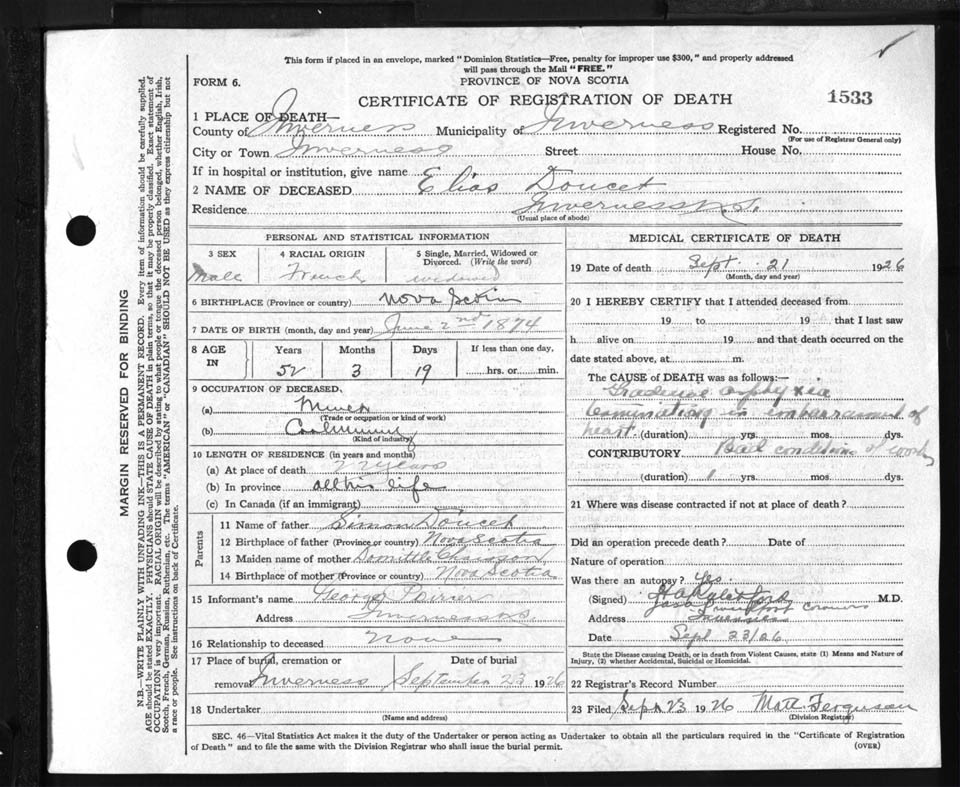 This form if placed in an envelope, marked "Dominion Statistics—Free, penalty for improper use $300," and properly addressed
will pass through the Mail "FREE."
FORM 6.
PROVINCE OF NOVA SCOTIA
CERTIFICATE OF REGISTRATION OF DEATH
1533
1 PLACE OF DEATH—
County of Inverness Municipality of Inverness Registered No.
(For use of Registrar General only)
City or Town Inverness Street House No.
If in hospital or institution, give name
2 NAME OF DECEASED Elias Doucet
Residence Inverness N.S.
(Usual place of abode)
PERSONAL AND STATISTICAL INFORMATION
3 SEX 4 RACIAL ORIGIN 5 Single, Married, Widowed or Divorced. (Write the word)
Male French widowed
6 BIRTHPLACE (Province or country) Nova Scotia
7 DATE OF BIRTH (month, day and year) June 2nd 1874
8 AGE IN Years Months Days If less than one day,
52 3 19 hrs. or min.
9 OCCUPATION OF DECEASED
(a) Miner
(Trade or occupation or kind of work)
(b) Coal mining
(Kind of industry)
10 LENGTH OF RESIDENCE (in years and months)
(a) At place of death 22 years
(b) In province all his life
(c) In Canada (if an immigrant)
Parents
11 Name of father Simon Doucet
12 Birthplace of father (Province or country) Nova Scotia
13 Maiden name of mother Domittle Chiasson
14 Birthplace of mother (Province or country) Nova Scotia
15 Informant's name George Poirier
Address Inverness N.S.
16 Relationship to deceased None
17 Place of burial, cremation or removal Inverness
Date of burial
September 23 1926
18 Undertaker
(Name and address)
MEDICAL CERTIFICATE OF DEATH
19 Date of death Sept. 21 1926
(Month, day and year)
20 I HEREBY CERTIFY that I attended deceased from
19 to 19 that I last saw
h alive on 19 and that death occurred on the
date stated above, at m.
The CAUSE of DEATH was as follows:—
asphyxia
terminating in embarrassment of
heart. (duration) yrs. mos. dys.
CONTRIBUTORY Bad conditions of work
(duration) 1 yrs. mos. dys.
21 Where was disease contracted if not at place of death?
Did an operation precede death? Date of
Nature of operation
Was there an autopsy? Yes.
(Signed) M.D.
Address Inverness
Date Sept 23/26
State the Disease causing Death, or in death from Violent Causes, state (1) Means and Nature of
Injury, (2) whether Accidental, Suicidal or Homicidal.
22 Registrar's Record Number
23 Filed Sept 23 1926 Matt. Ferguson
(Division Registrar)
SEC. 46—Vital Statistics Act makes it the duty of the Undertaker or person acting as Undertaker to obtain all the particulars required in the "Certificate of Registration
of Death" and to file the same with the Division Registrar who shall issue the burial permit.
(OVER)
MARGIN RESERVED FOR BINDING
N.B.—WRITE PLAINLY WITH UNFADING INK—THIS IS A PERMANENT RECORD. Every item of information should be carefully supplied.
AGE should be stated EXACTLY. PHYSICIANS should STATE CAUSE OF DEATH in plain terms, so that it may be properly classified. Exact statement of
OCCUPATION is very important. RACIAL ORIGIN will be described by stating to what people or tongue the deceased person belonged, whether English, Irish,
Scotch, French, German, Russian, Ruthenian, etc. The terms "AMERICAN" or "CANADIAN" SHOULD NOT BE USED as they express citizenship but not
a race or people. See instructions on back of Certificate.